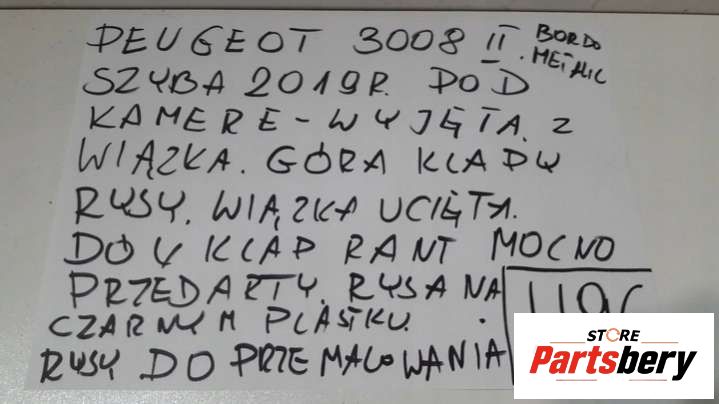 PEUGEOT 3008 II. BORDO METALIC
SZYBA 2019R. POD
KAMERE - WYJĘTA. Z
WIĄZKA. GÓRA KLAPY
RYSY. WIĄZKA UCIĘTA.
DÓŁ KLAP RANT MOCNO
PRZEDARTY. RYSA NA
CZARNYM PLASTKU.
RYSY DO PRZEMALOWANIA
STORE
Partsbery